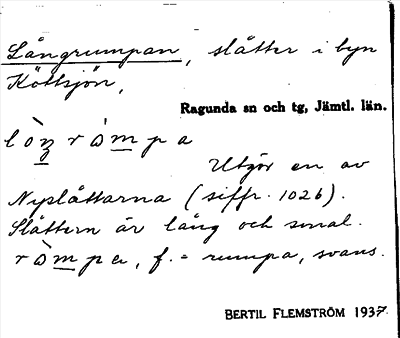 Långrumpan, slåtter i byn
Köttsjön,
Ragunda sn och tg, Jämtl. län.
lòŋ ròmpa
Utgör en av
Nyslåttarna (siffr. 1026).
Slåttern är lång och smal.
ròmpa, f. = rumpa, svans.
BERTIL FLEMSTRÖM 1937.